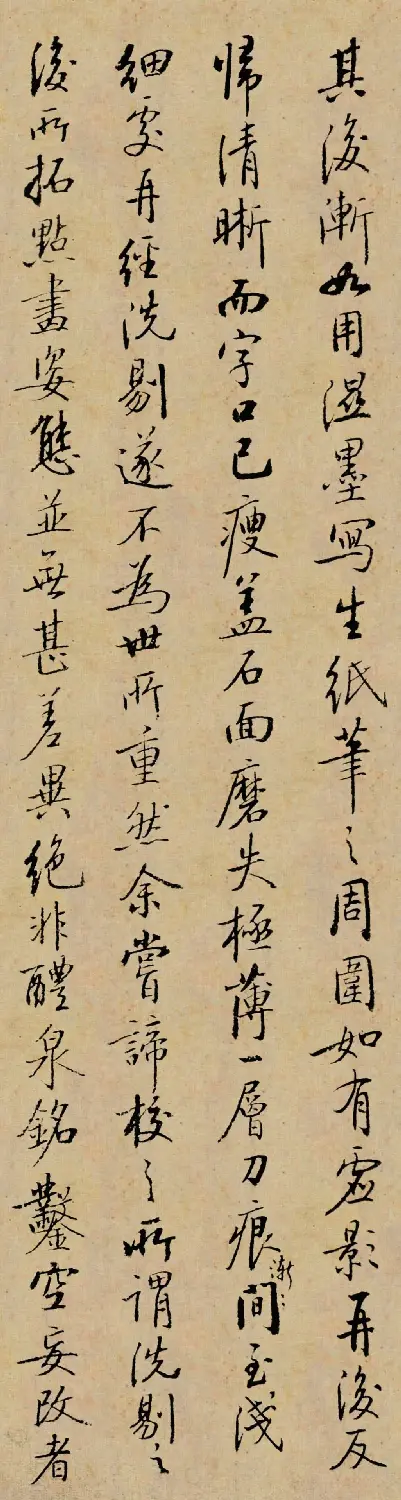 其後漸如用濕墨寫生紙筆之周圍如有虛影再後反
帰清晰而字口已瘦盖石面磨失極薄一層刀痕漸間至淺
細處再經洗剔遂不為世所重然余嘗諦校之所謂洗剔之
後所拓點畫姿態並無甚差異絕非醴泉銘鑿空妄改者